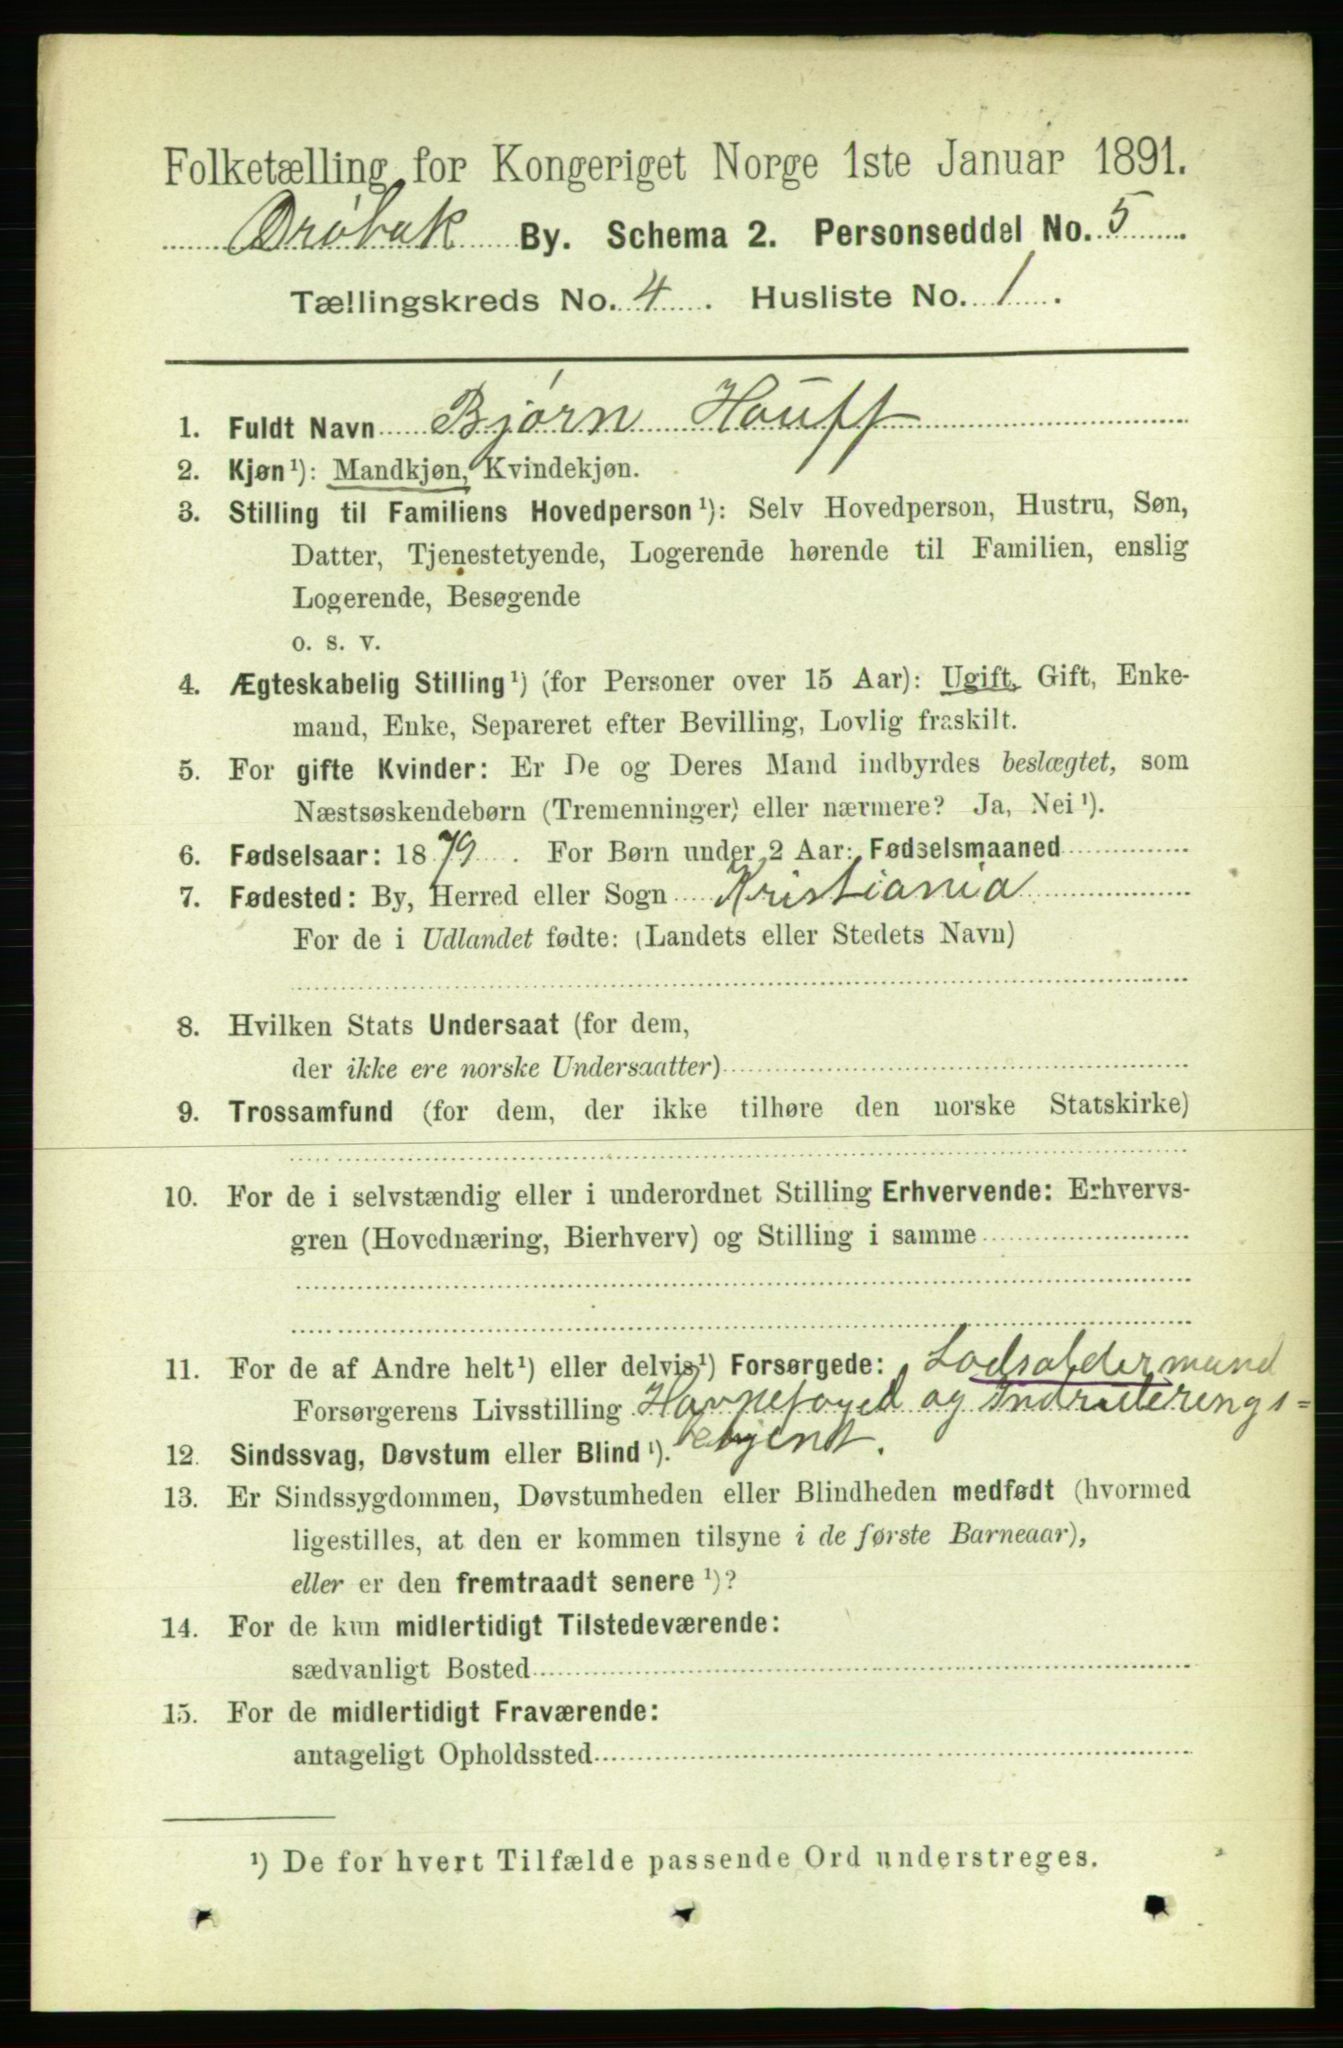 Folketælling for Kongeriget Norge 1ste Januar 1891.
Drøbak By. Schema 2. Personseddel No. 5
Tællingskreds No. 4. Husliste No. 1.
1. Fuldt Navn Bjørn Houff
2. Kjøn¹): Mandkjøn, Kvindekjøn.
3. Stilling til Familiens Hovedperson¹): Selv Hovedperson, Hustru, Søn,
Datter, Tjenestetyende, Logerende hørende til Familien, enslig
Logerende, Besøgende
o. s. v.
4. Ægteskabelig Stilling¹) (for Personer over 15 Aar): Ugift, Gift, Enke-
mand, Enke, Separeret efter Bevilling, Lovlig fraskilt.
5. For gifte Kvinder: Er De og Deres Mand indbyrdes beslægtet, som
Næstsøskendebørn (Tremenninger) eller nærmere? Ja, Nei¹).
6. Fødselsaar: 1879. For Børn under 2 Aar: Fødselsmaaned
7. Fødested: By, Herred eller Sogn Kristiania
For de i Udlandet fødte: (Landets eller Stedets Navn)
8. Hvilken Stats Undersaat (for dem,
der ikke ere norske Undersaatter)
9. Trossamfund (for dem, der ikke tilhøre den norske Statskirke)
10. For de i selvstændig eller i underordnet Stilling Erhvervende: Erhvervs-
gren (Hovednæring, Bierhverv) og Stilling i samme
11. For de af Andre helt¹) eller delvis¹) Forsørgede: Lodsoldermand
Forsørgerens Livsstilling Havnefoged og Indrulerings=
12. Sindssvag, Døvstum eller Blind¹). betjent.
13. Er Sindssygdommen, Døvstumheden eller Blindheden medfødt (hvormed
ligestilles, at den er kommen tilsyne i de første Barneaar),
eller er den fremtraadt senere¹)?
14. For de kun midlertidigt Tilstedeværende:
sædvanligt Bosted
15. For de midlertidigt Fraværende:
antageligt Opholdssted
¹) De for hvert Tilfælde passende Ord understreges.